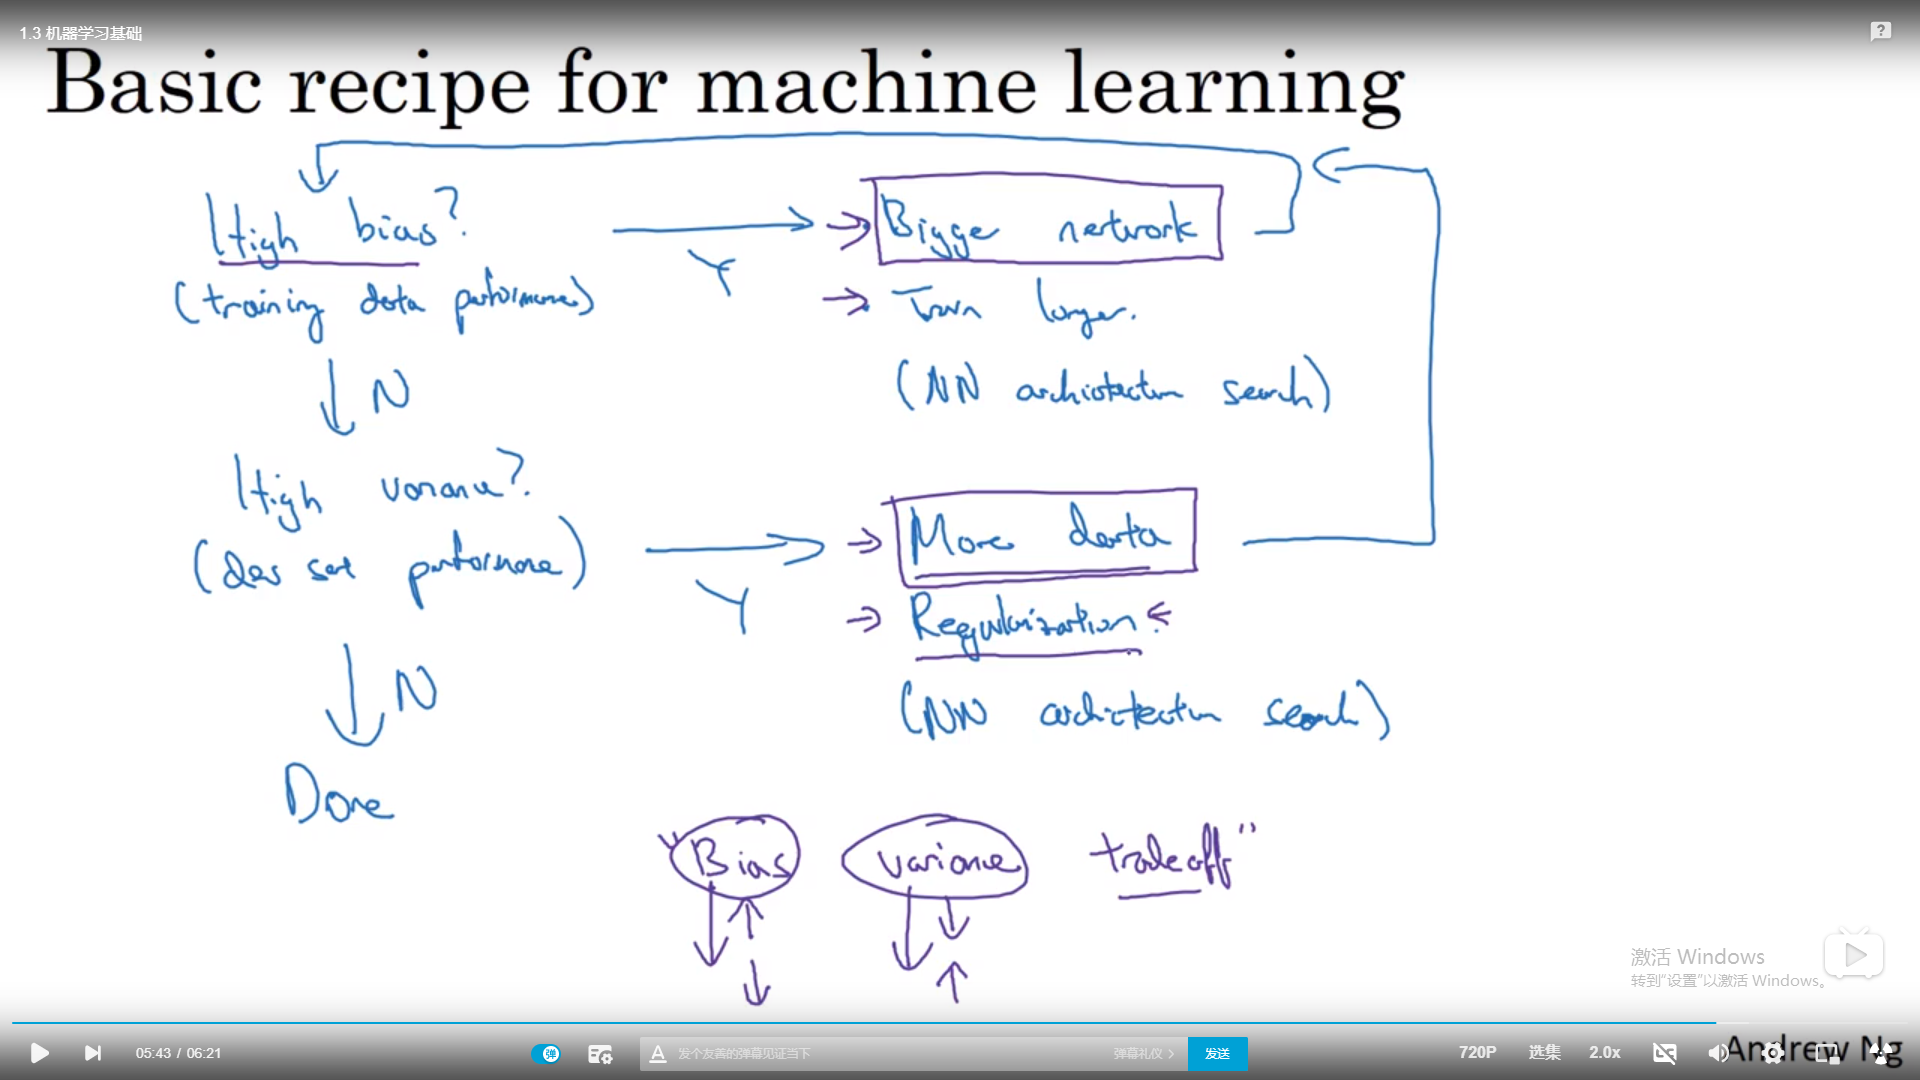 1.3 机器学习基础
Basic recipe for machine learning
High bias?
Y
Bigger network
(training data performance)
Train longer.
N
(NN architecture search)
High variance?
(dev set performance)
Y
More data
Regularization.
N
(NN architecture search)
Done
"Bias variance tradeoff"
激活 Windows
转到“设置”以激活 Windows。
Andrew Ng
05:43 / 06:21
弹
发个友善的弹幕见证当下
弹幕礼仪 >
发送
720P
选集
2.0x